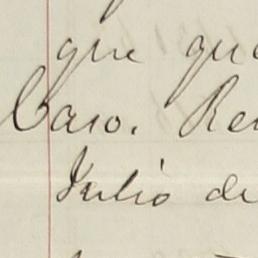 que que
Caso. Re
Julio de